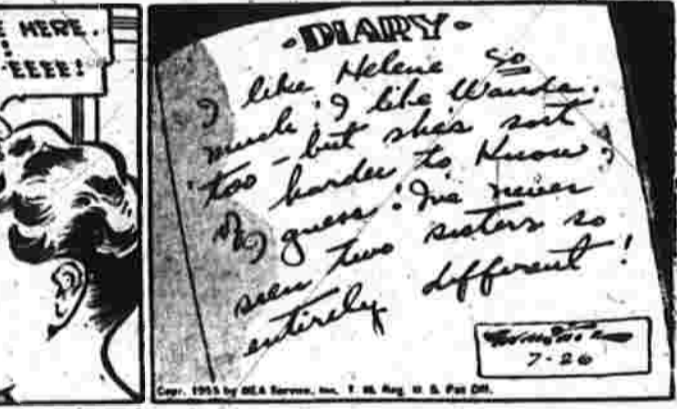 E HERE.
EEEE!
·DIARY·
I like Helene so
much! I like Wanda.
too - but shes sort
of harder to know,
I guess! I've never
seen two sisters so
entirely different!
7-26
Copr. 1955 by NEA Service, Inc. T. M. Reg. U. S. Pat Off.